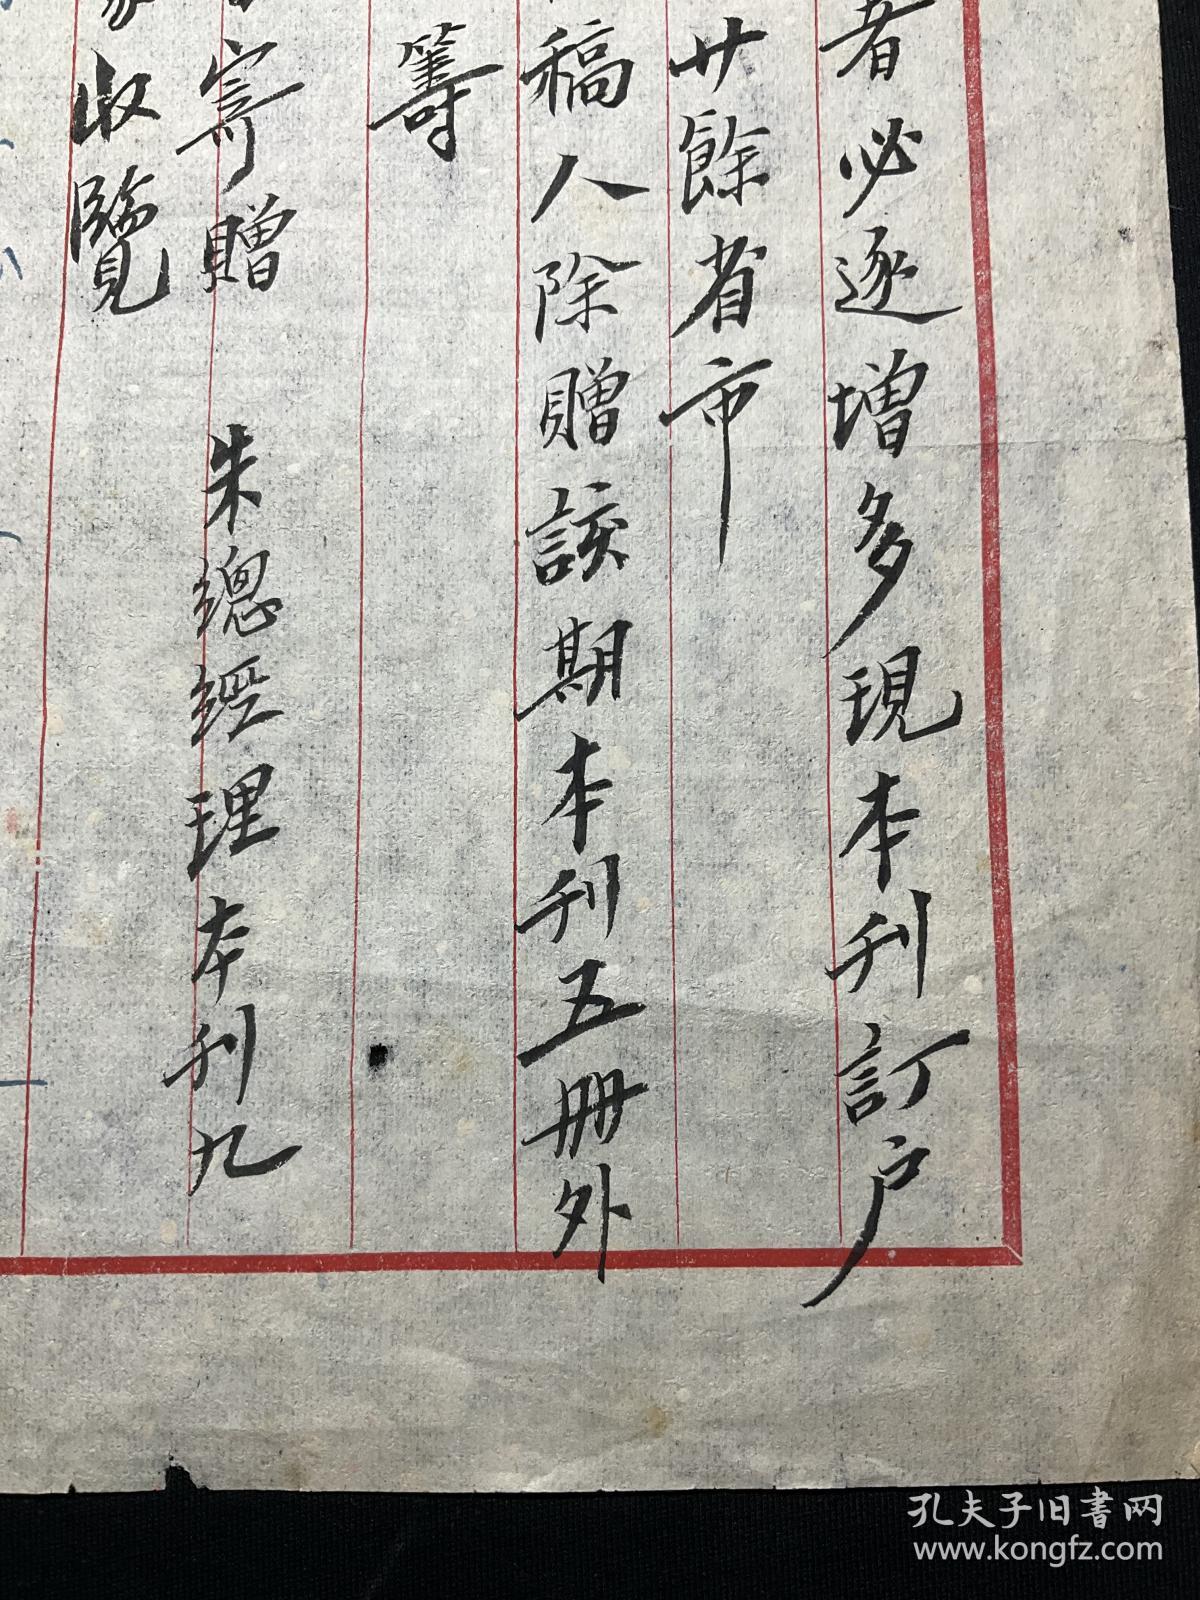 者必逐增多現本刊訂户
廿餘省市
稿人除贈該期本刊五册外
籌
寄贈 朱總經理本刊九
收覽
孔夫子旧書网
www.kongfz.com